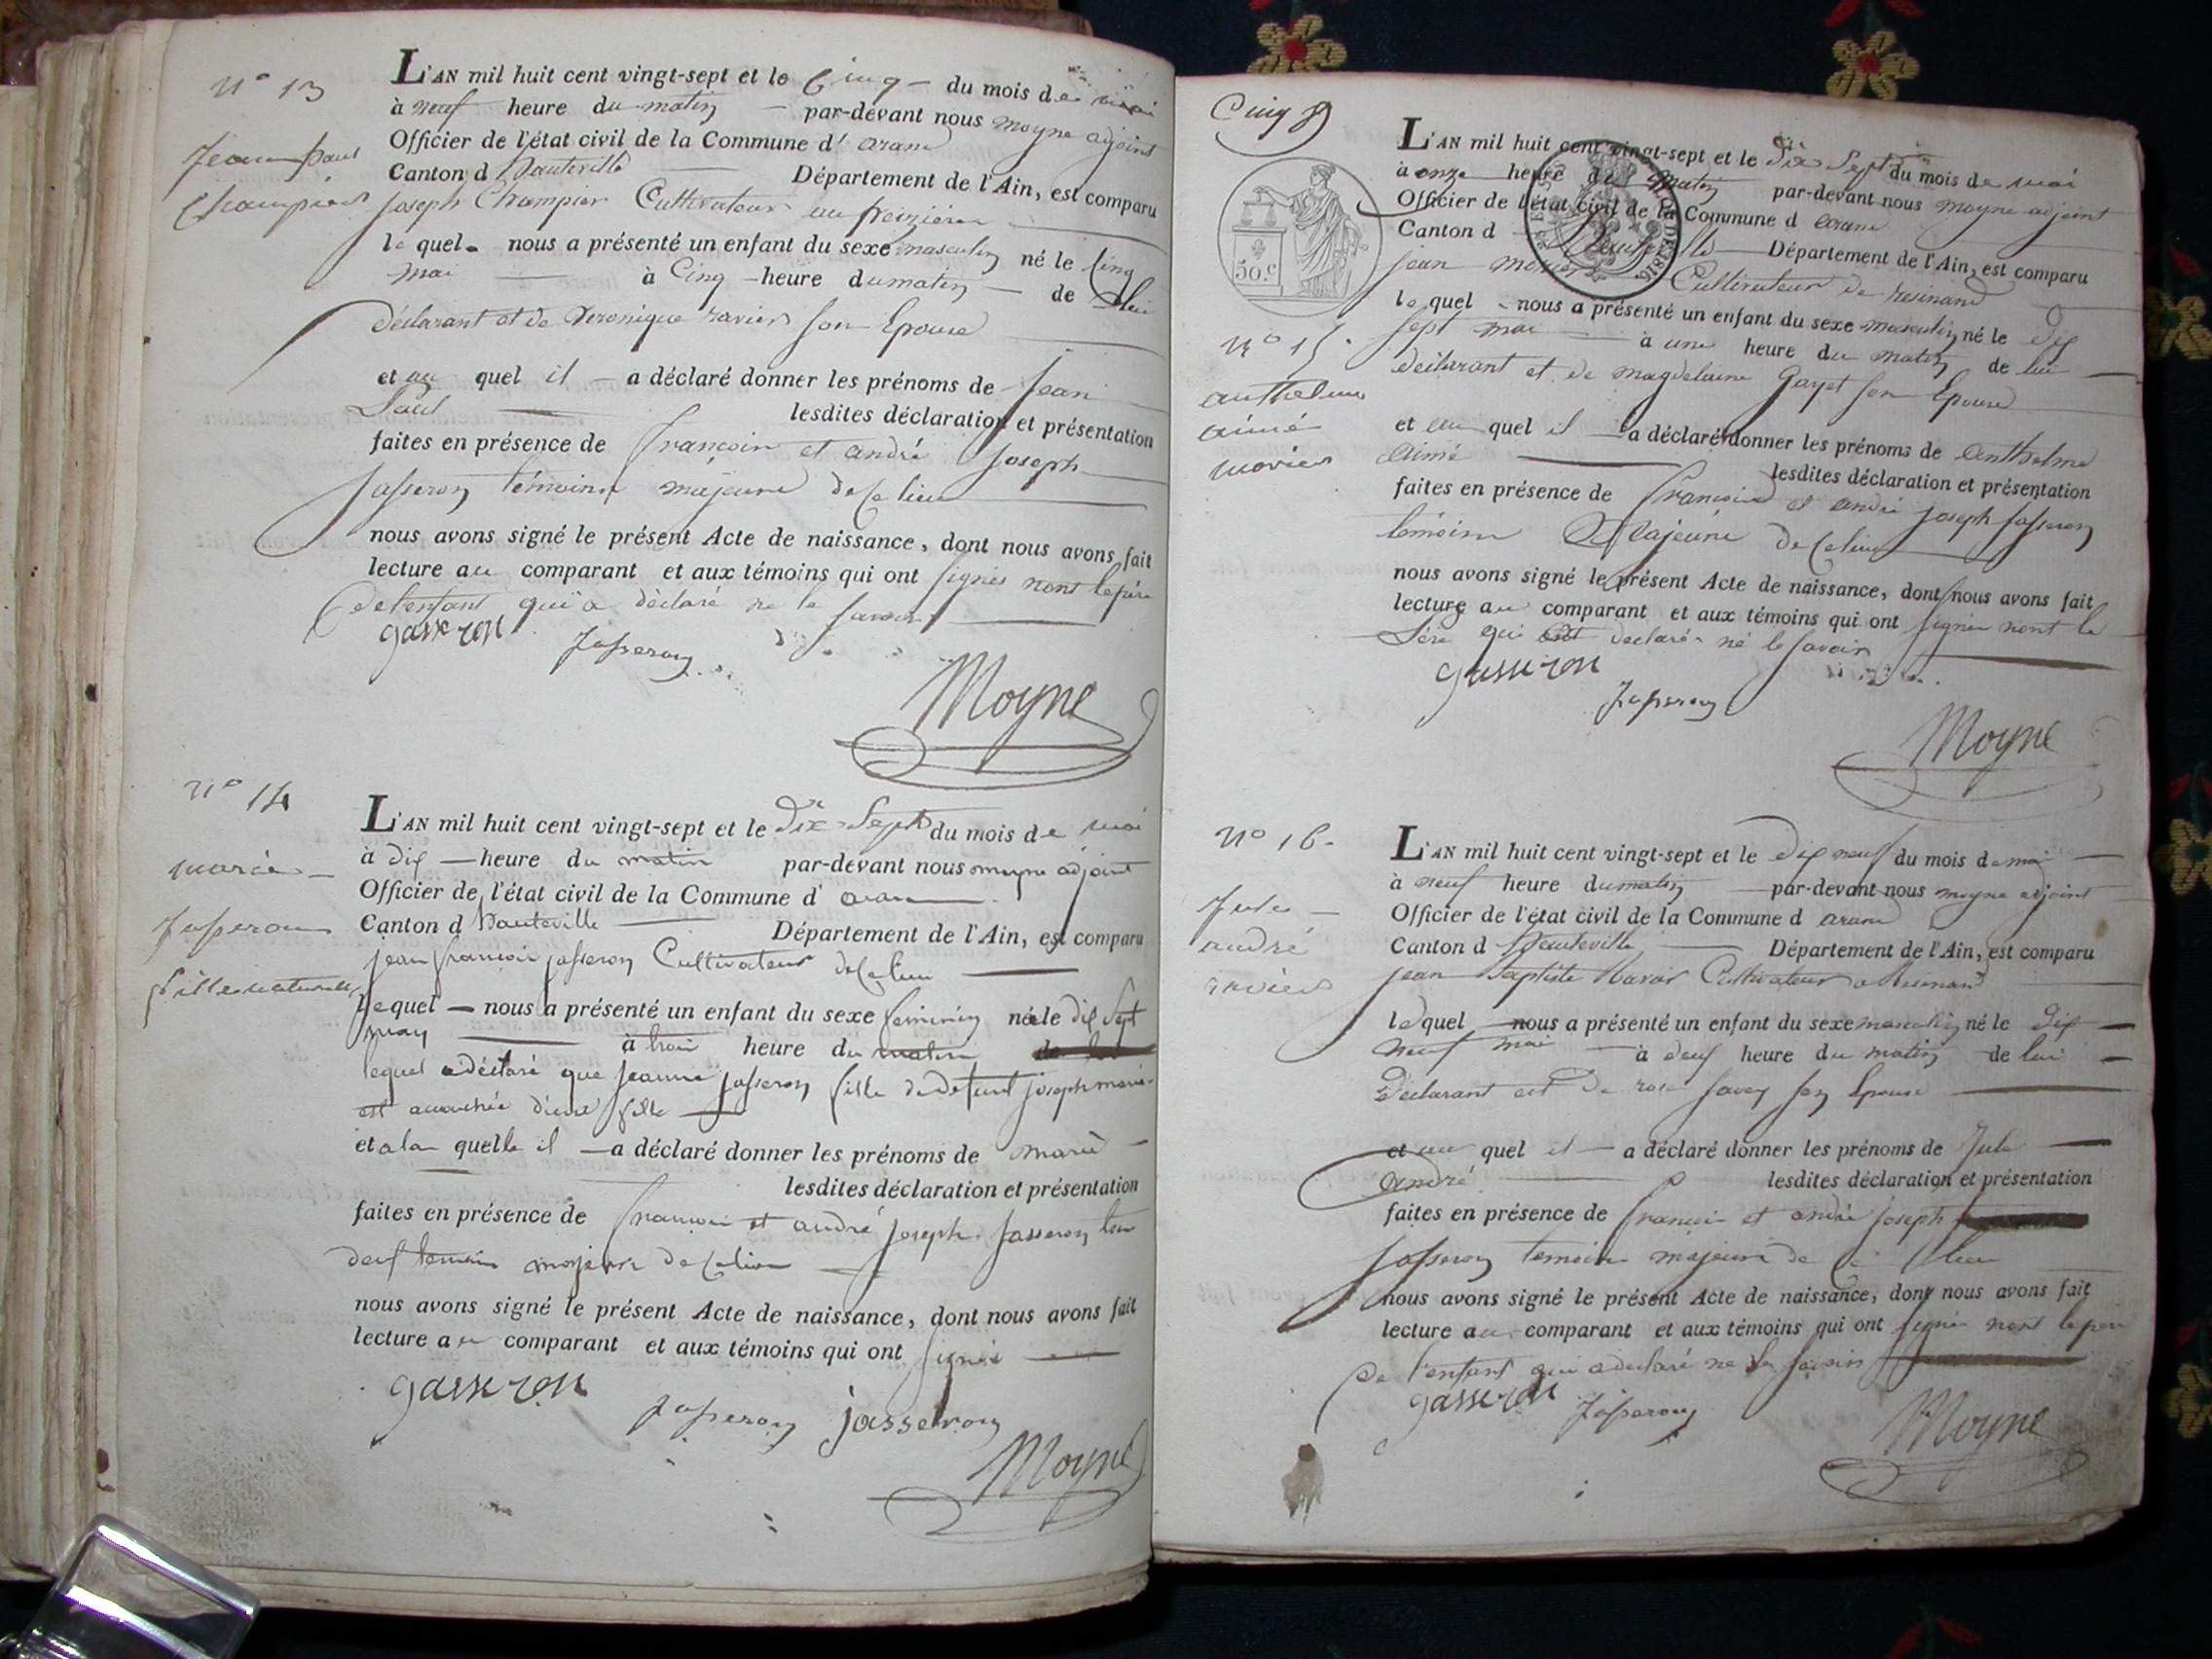 N° 13
Jean paul
Champion
L'AN mil huit cent vingt-sept et le Cinq du mois de mai
à neuf heure du matin par-devant nous moyne adjoint
Officier de l'état civil de la Commune d' aranc
Canton d'hauteville Département de l'Ain, est comparu
joseph Champion Cultivateur au
le quel nous a présenté un enfant du sexe masculin né le Cinq
mai à Cinq heure du matin de lui
déclarant et de Veronique ravier son Epouse
et au quel il a déclaré donner les prénoms de jean
Paul lesdites déclaration et présentation
faites en présence de françois et andré joseph
Jasseron témoins majeure de ce lieu
nous avons signé le présent Acte de naissance, dont nous avons fait
lecture au comparant et aux témoins qui ont signés nont le père
de lenfant qui a déclaré ne le savoir
gasseron
Jasseron
Moyne
N° 14
marie
Jasseron
fille naturelle
L'AN mil huit cent vingt-sept et le Dix Sept du mois de mai
à dix heure du matin par-devant nous moyne adjoint
Officier de l'état civil de la Commune d' aranc
Canton d hauteville Département de l'Ain, est comparu
jean françois jasseron Cultivateur de ce lieu
lequel nous a présenté un enfant du sexe feminin née le dix Sept
may à trois heure du matin
lequel a déclaré que jeanne jasseron fille de defunt joseph marie
est accouchée d'une fille
et a la quelle il a déclaré donner les prénoms de marie
lesdites déclaration et présentation
faites en présence de françois et andré joseph Jasseron
deux temoins majeure de ce lieu
nous avons signé le présent Acte de naissance, dont nous avons fait
lecture au comparant et aux témoins qui ont signé
gasseron
Jasseron
jasseron
Moyne
Cinq
50.c
N° 15
anthelme
aimé
L'AN mil huit cent vingt-sept et le Dix Sept du mois de mai
à onze heure du matin par-devant nous moyne adjoint
Officier de l'état civil de la Commune d aranc
Canton d hauteville Département de l'Ain, est comparu
jean Cultivateur de resinand
le quel nous a présenté un enfant du sexe masculin né le dix
sept mai à une heure du matin de lui
déclarant et de magdelaine Gayet son Epouse
et au quel il a déclaré donner les prénoms de anthelme
aimé lesdites déclaration et présentation
faites en présence de françois et andré joseph jasseron
témoins Majeure de ce lieu
nous avons signé le présent Acte de naissance, dont nous avons fait
lecture au comparant et aux témoins qui ont signés nont le
Père qui déclaré ne le savoir
gasseron
Jasseron
Moyne
N° 16
Jule
andré
L'AN mil huit cent vingt-sept et le dix neuf du mois de mai
à neuf heure du matin par-devant nous moyne adjoint
Officier de l'état civil de la Commune d aranc
Canton d hauteville Département de l'Ain, est comparu
jean Baptiste Cultivateur a resinand
le quel nous a présenté un enfant du sexe masculin né le dix
neuf mai à deux heure du matin de lui
déclarant et De rose savey son Epouse
et au quel il a déclaré donner les prénoms de Jule
andré lesdites déclaration et présentation
faites en présence de françois et andré joseph
Jasseron temoins majeure de ce lieu
nous avons signé le présent Acte de naissance, dont nous avons fait
lecture au comparant et aux témoins qui ont signé nont le père
de l'enfant qui a déclaré ne le savoir
gasseron
Jasseron
Moyne